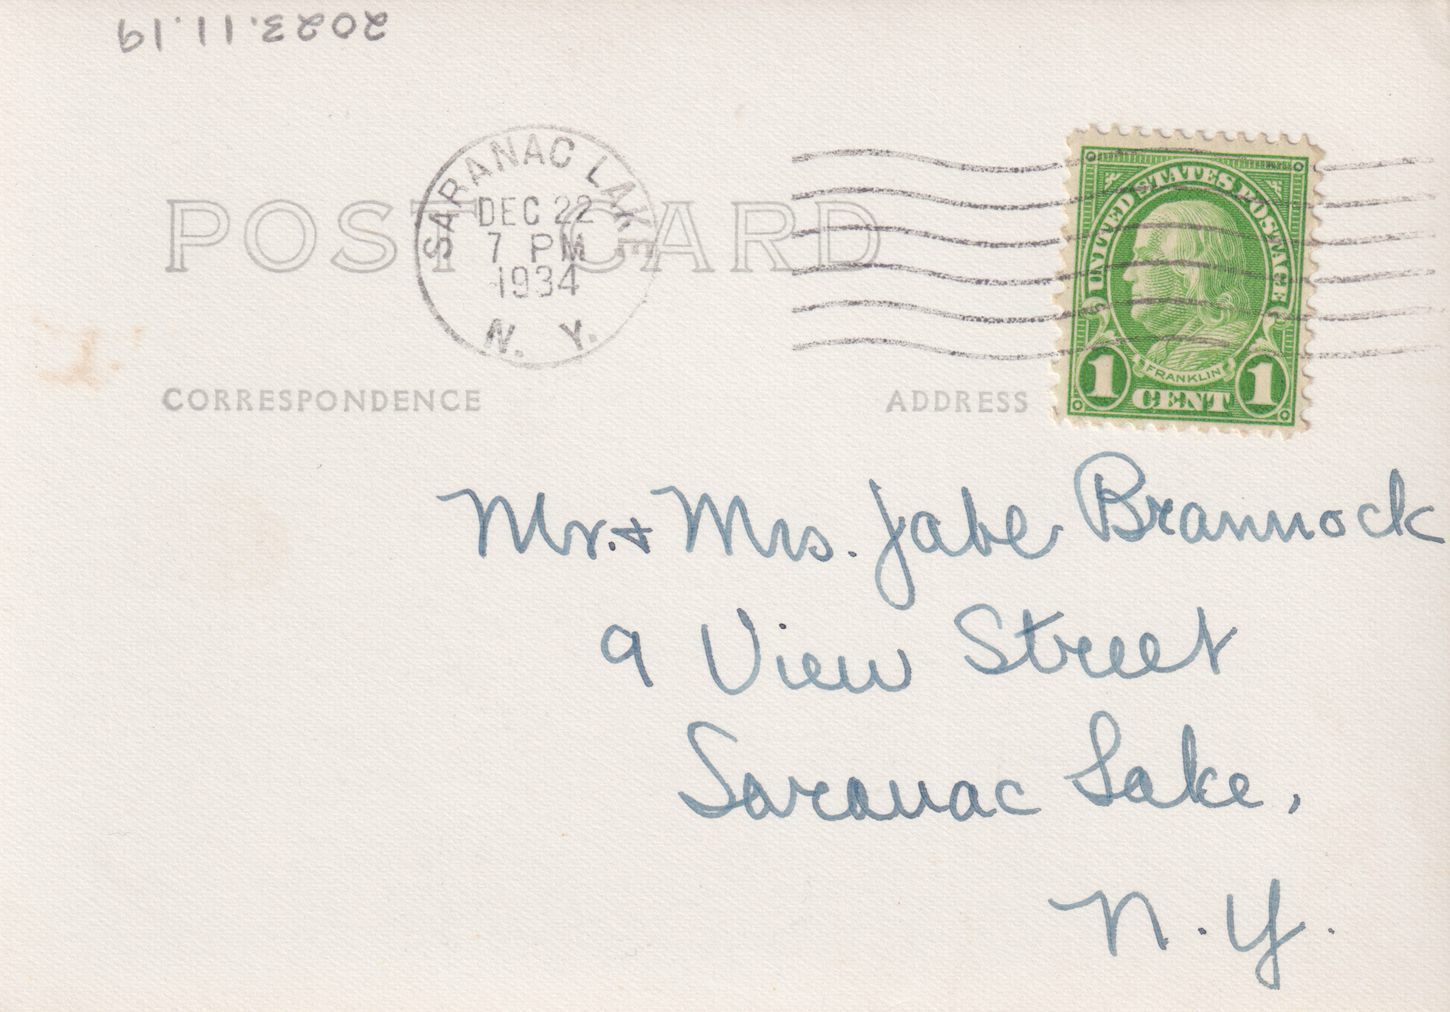 2023.11.19
SARANAC LAKE
DEC 22
7 PM
1934
N. Y.
UNITED STATES POSTAGE
FRANKLIN
1 CENT 1
POST CARD
CORRESPONDENCE
ADDRESS
Mr. + Mrs. Jabe Brannock
9 View Street
Saranac Lake,
N.Y.